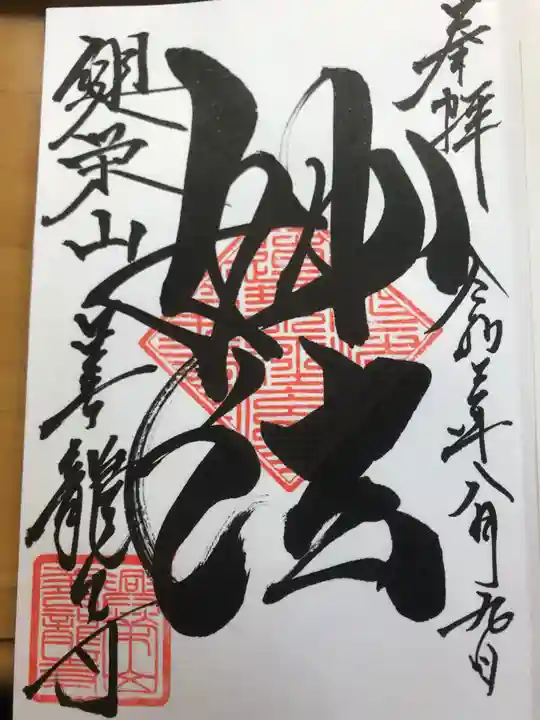 奉拝
令和三年八月九日
妙法
栄山 善龍寺